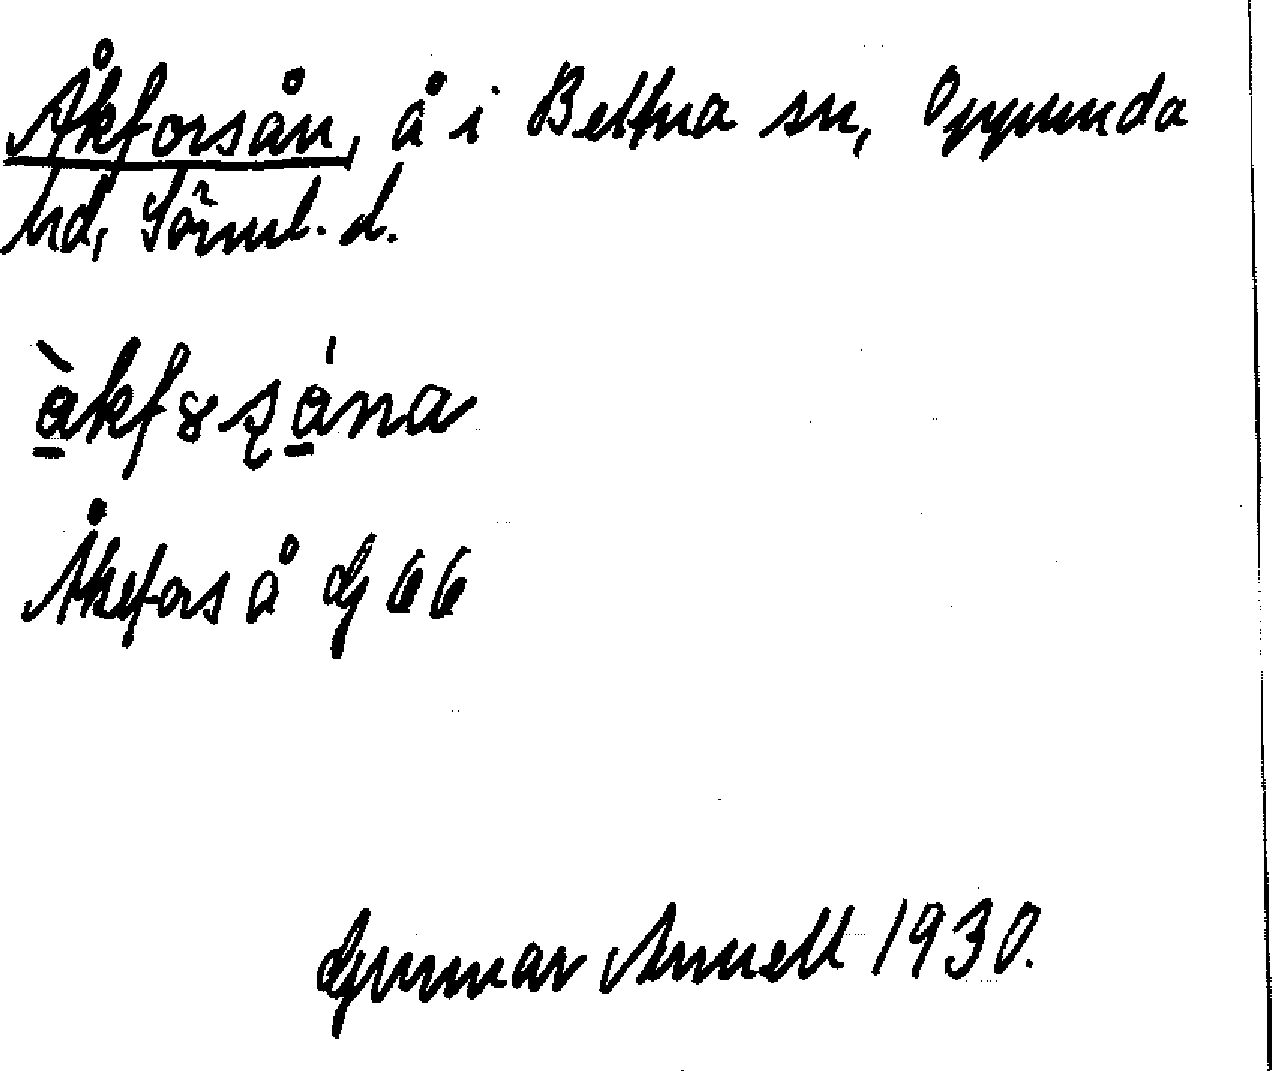 Åkforsån, å i Bettna sn, Oppunda
hd, Sörml. d.
àkf8sána
Åkefors å G 66
Gunnar Annell 1930.